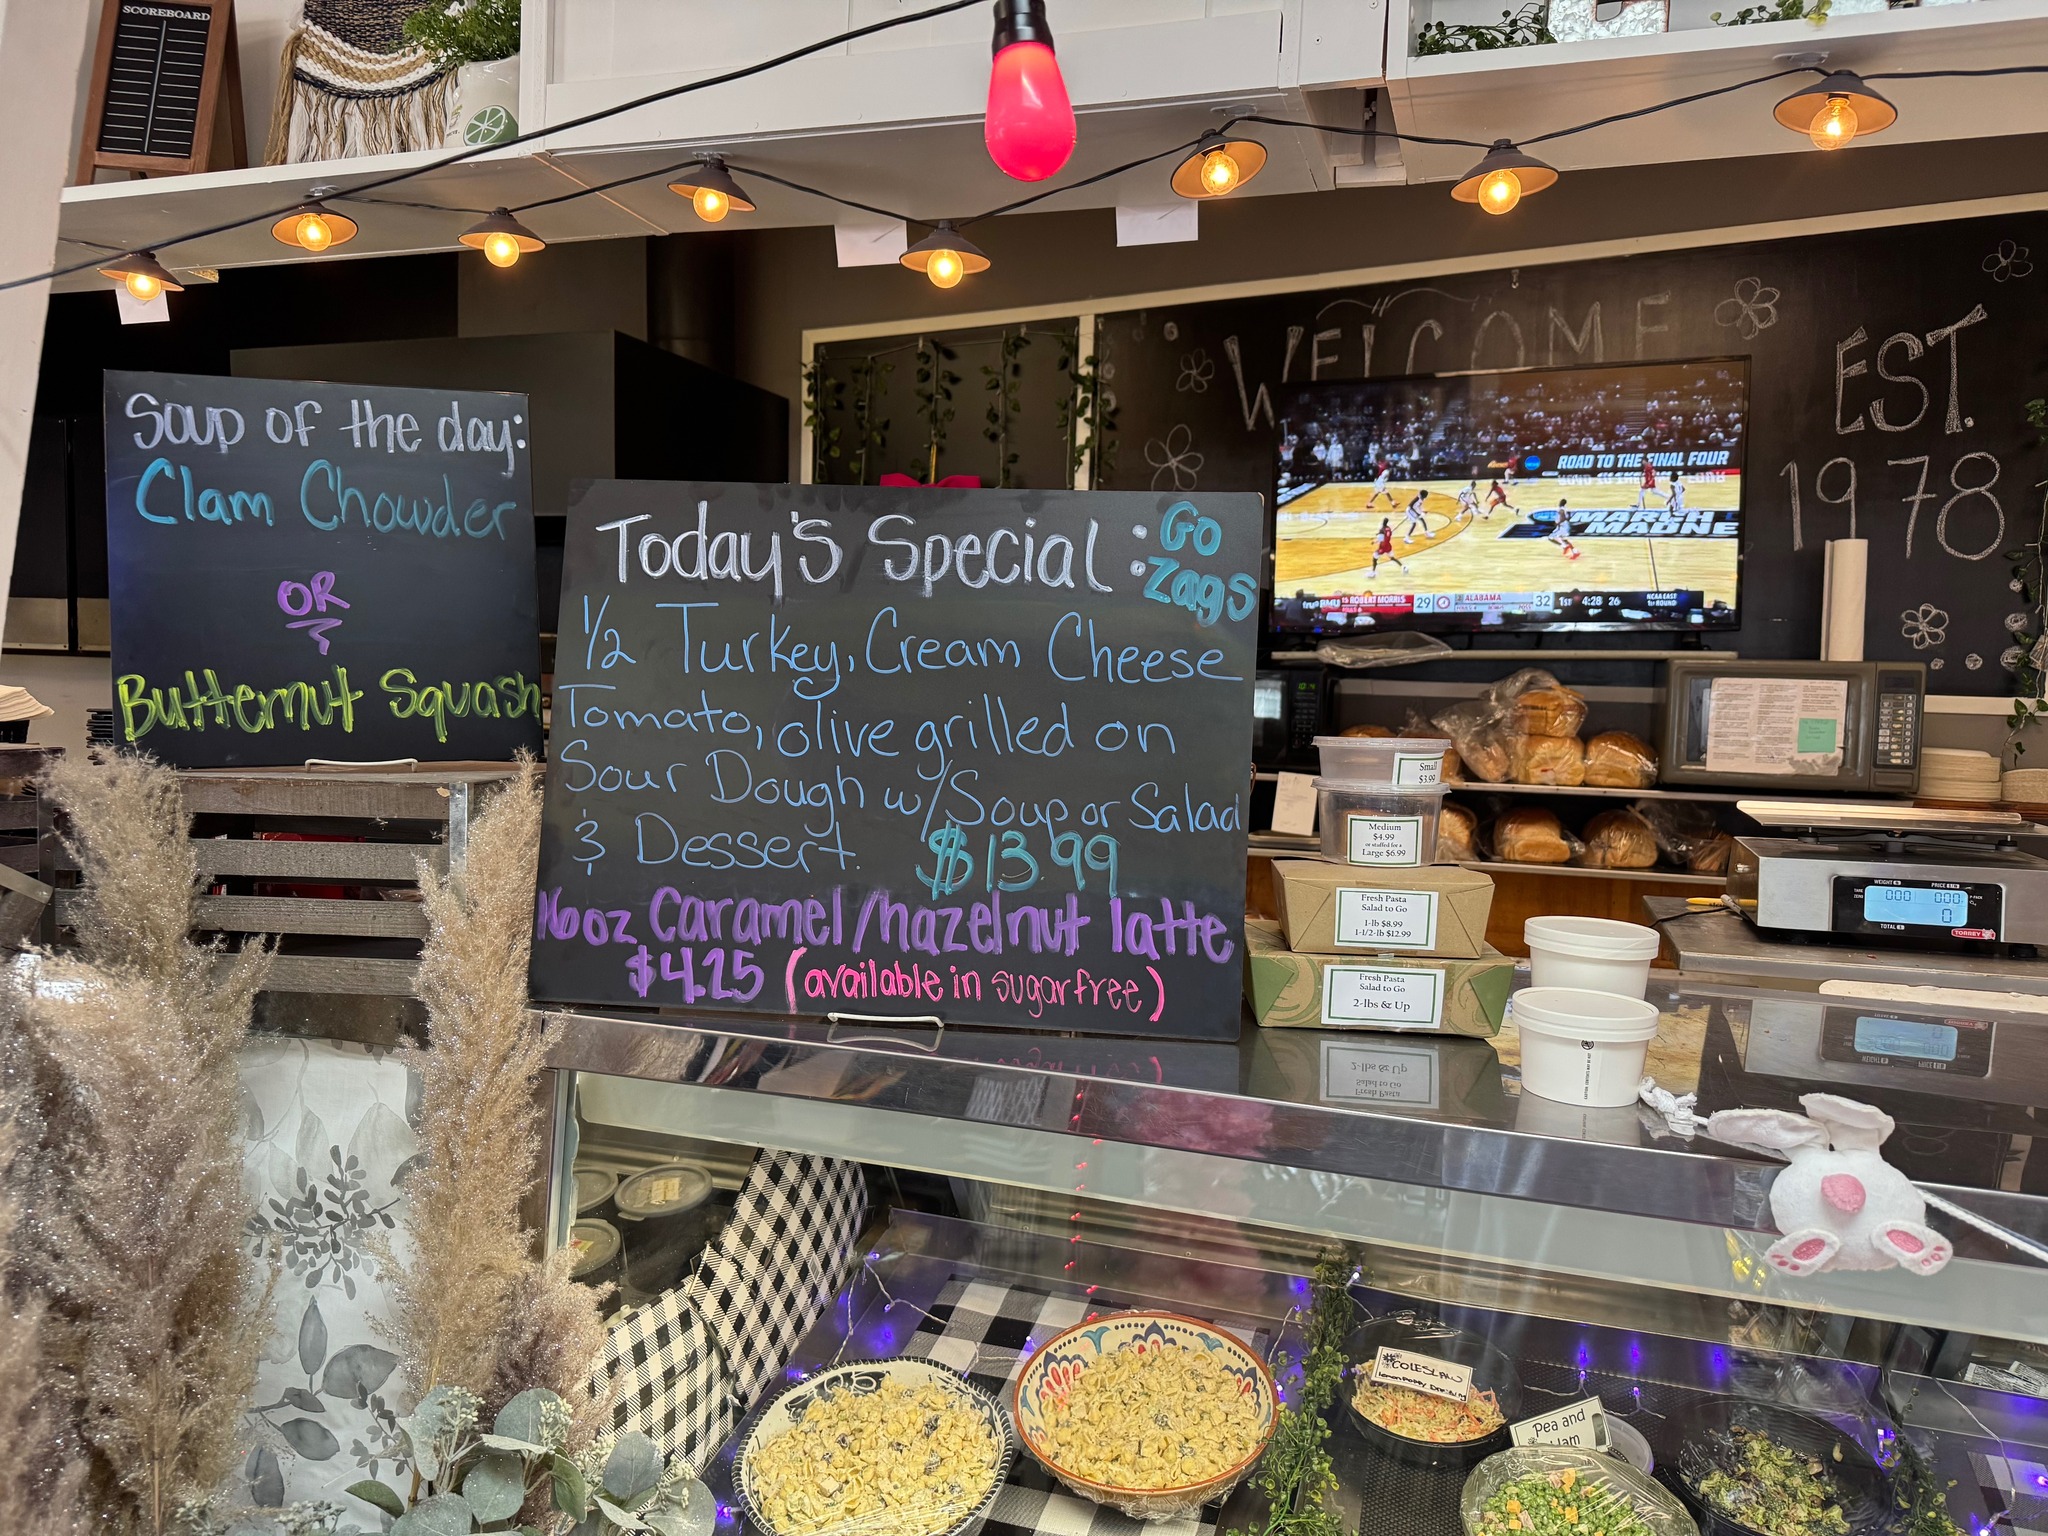 SCOREBOARD
Soup of the day:
Clam Chowder
OR
Butternut Squash
Today's Special :
Go
Zags
1/2 Turkey, Cream Cheese
Tomato, olive grilled on
Sour Dough w/Soup or Salad
& Dessert. $13.99
16oz Caramel/hazelnut latte
$4.25 (available in sugarfree)
WELCOME
EST.
1978
ROAD TO THE FINAL FOUR
MARCH
MADNE
truTV RMU 15 ROBERT MORRIS 29 2 ALABAMA 32 1ST 4:28 26
NCAA EAST
1ST ROUND
Small
$3.99
Medium
$4.99
or stuffed for a
Large $6.99
Fresh Pasta
Salad to Go
1-lb $8.99
1-1/2-lb $12.99
Fresh Pasta
Salad to Go
2-lbs & Up
WEIGHT
PRICE
0.00
0.00
0
TOTAL
TORREY
COLESLAW
Lemon Poppy Dressing
Pea and
Ham